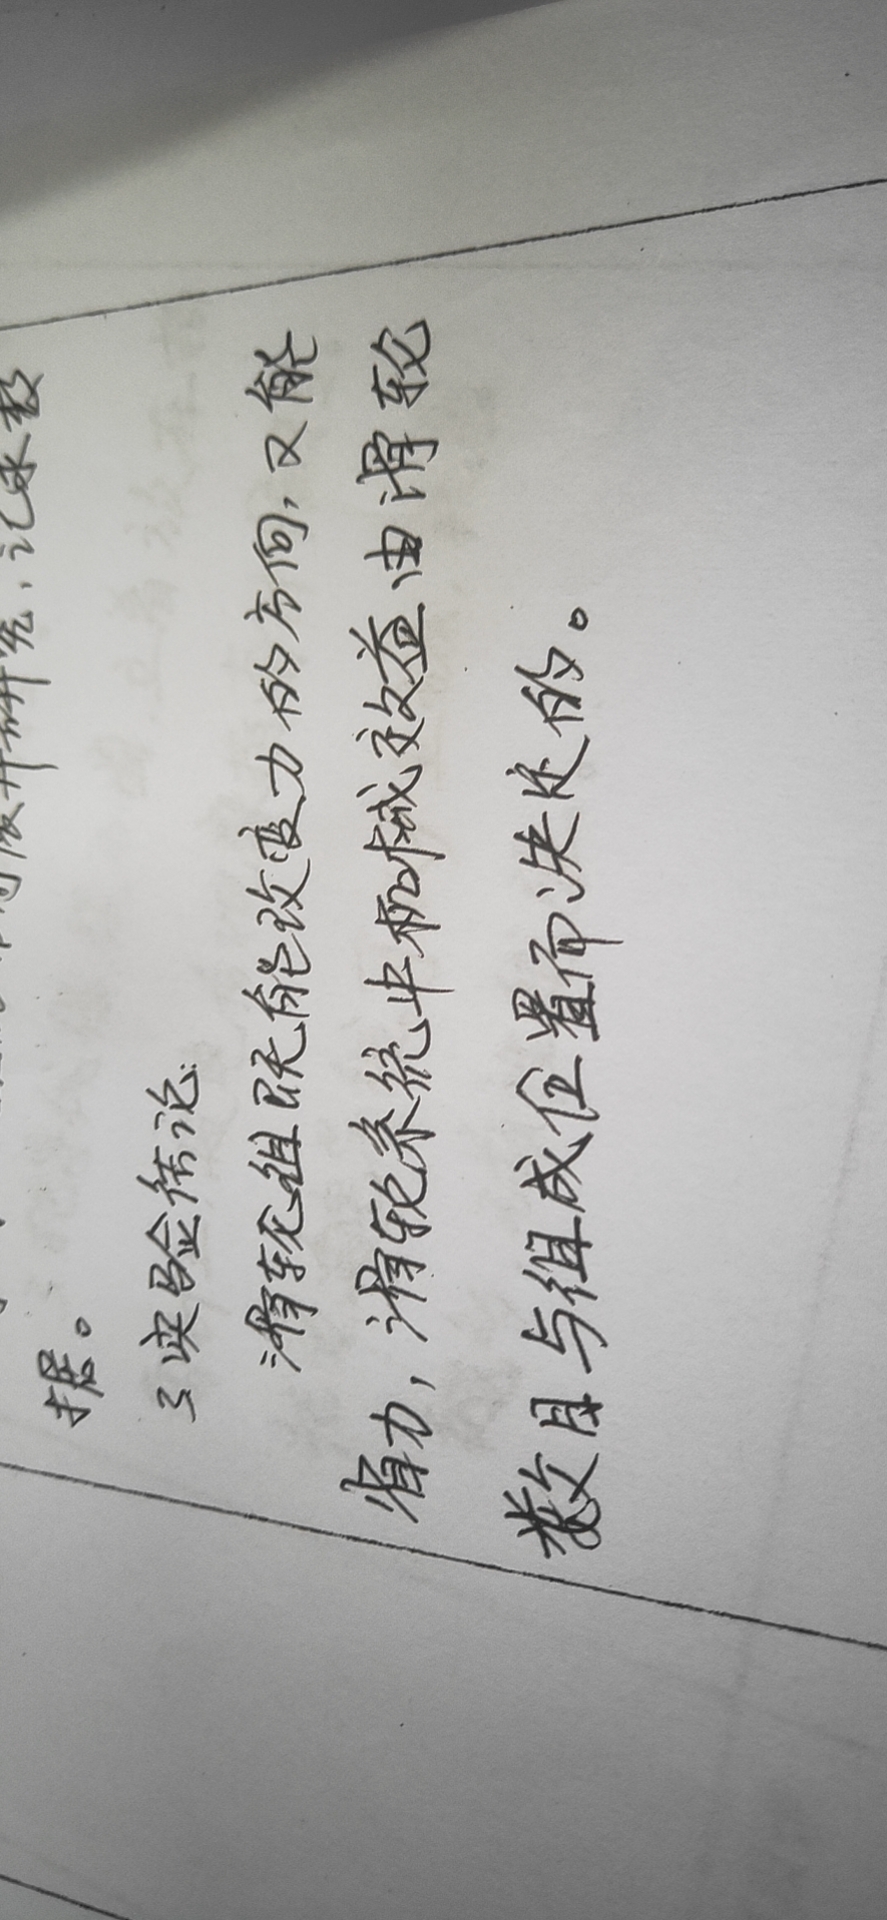 展开研究,记录数
据。
3 实验结论:
滑轮组既能改变力的方向,又能
省力,滑轮系统中机械效益由滑轮
数目与组成位置而决定的。